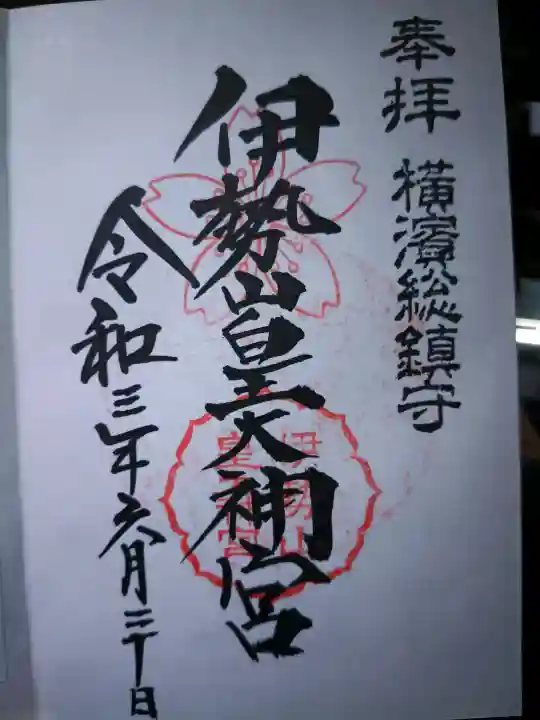 奉拝 横濱総鎮守
伊勢山皇大神宮
令和三年六月三十日
伊勢山皇大神宮